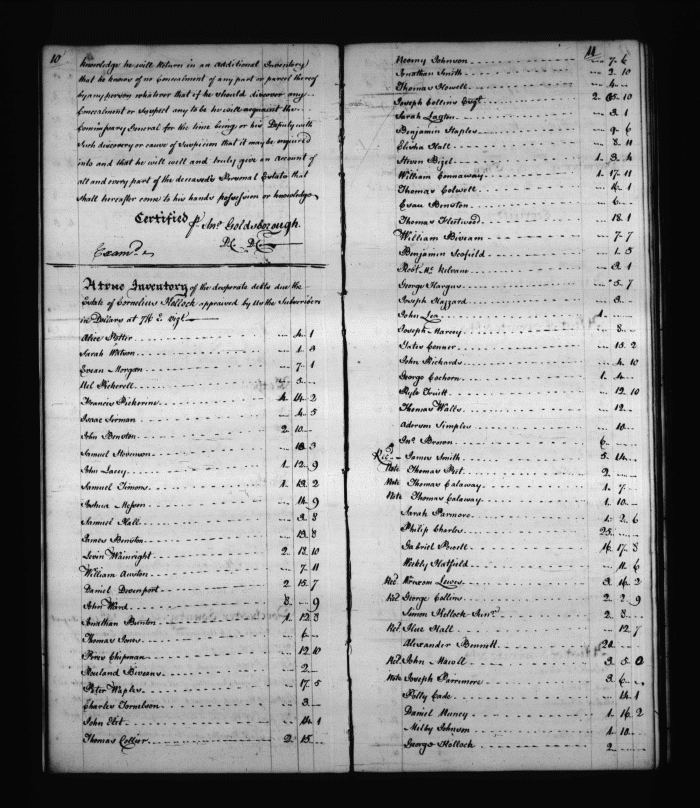 10
knowledge he will return in an Additional Inventory
that he knows of no Concealment of any part or parcel thereof
by any person whatever that if he should discover any
Concealment or suspect any to be he will acquaint the
Commissary General for the time being or his Deputy with
such discovery or cause of suspicion that it may be enquired
into and that he will well and truly give an account of
all and every part of the deceased's Personal Estate that
shall hereafter come to his hands possession or knowledge
Certified pr Jno. Goldsborough.
Examd.
A true Inventory of the desperate debts due the
Estate of Cornelius Hollock appraised by Us the Subscribers
in Dollars at 7/6
Alice Potter --- 4 1
Sarah Watson --- 1 3
Evean Morgan --- 7 1
Nel Pickerell --- 5 ---
Francis Pickerine 4 14 2
Isaac Serman --- 4 5
John Benston 2 10 ---
Samuel Stevenson --- 18 3
John Lacey 1 12 9
Samuel Timons 1 13 2
Joshua --- 14 9
Samuel Hall --- 3 8
James Benston --- 13 8
Levin Wainright 2 13 10
William Auston --- 7 11
Daniel Devenport 2 15 7
John Ward 8 --- 9
Jonathan Bunton 1 12 3
Thomas Jones --- 6 ---
Perer Chipman --- 12 10
Rouland Biveans --- 2 ---
Peter Waples --- 17 5
Charles Tornelson --- 3 ---
John Elit --- 14 1
Thomas Collier 2 15 ---
11
Neomy Johnson --- 7 6
Jonathan Smith --- 2 10
Thomas Howell --- 4 ---
Joseph Collins 2 15 10
Sarah Layton --- 3 1
Benjamin Staples --- 9 6
Elisha Hall --- 8 11
Steven Bizel 1 3 4
William Ennaway 1 17 11
Thomas Colwell --- 14 1
Evan Benston --- 6 ---
Thomas Fleetwood --- 18 1
William Bivram --- 7 7
Benjamin Scofield --- 1 5
Robt. Mc. Nelvram --- 3 1
George Hargus --- 5 7
Joseph Hazzard --- 3 ---
John Lea 1 ---
Joseph Harvey --- 8 ---
Yates Conner --- 15 2
John Richards --- 4 10
George Cochorn 1 4 ---
Ryle Truitt --- 12 10
Thomas Walls --- 12 ---
Aderom Simples --- 10 ---
Jno. Brown 6 ---
James Smith 5 14 ---
Note Thomas 2 ---
Note Thomas Calaway 1 7 ---
Note Thomas Calaway 1 10 ---
Sarah Parmore 1 2 6
Philip Charles 25 ---
Gabriel Powell 16 17 8
Weekly Hatfield --- 11 6
Red. Wrixom Lewis 3 16 2
Red. George Collins 2 2 9
Simon Hollock Junr. 2 8 ---
Red. Alice Hall --- 12 7
Alexander Bennett 20 ---
Red. John Nawell 3 5 0
Note Joseph Parremore 3 6 ---
Polly Cade --- 14 1
Daniel Muncy 1 16 2
Milby Johnson 1 10 ---
George Hollock 2 ---